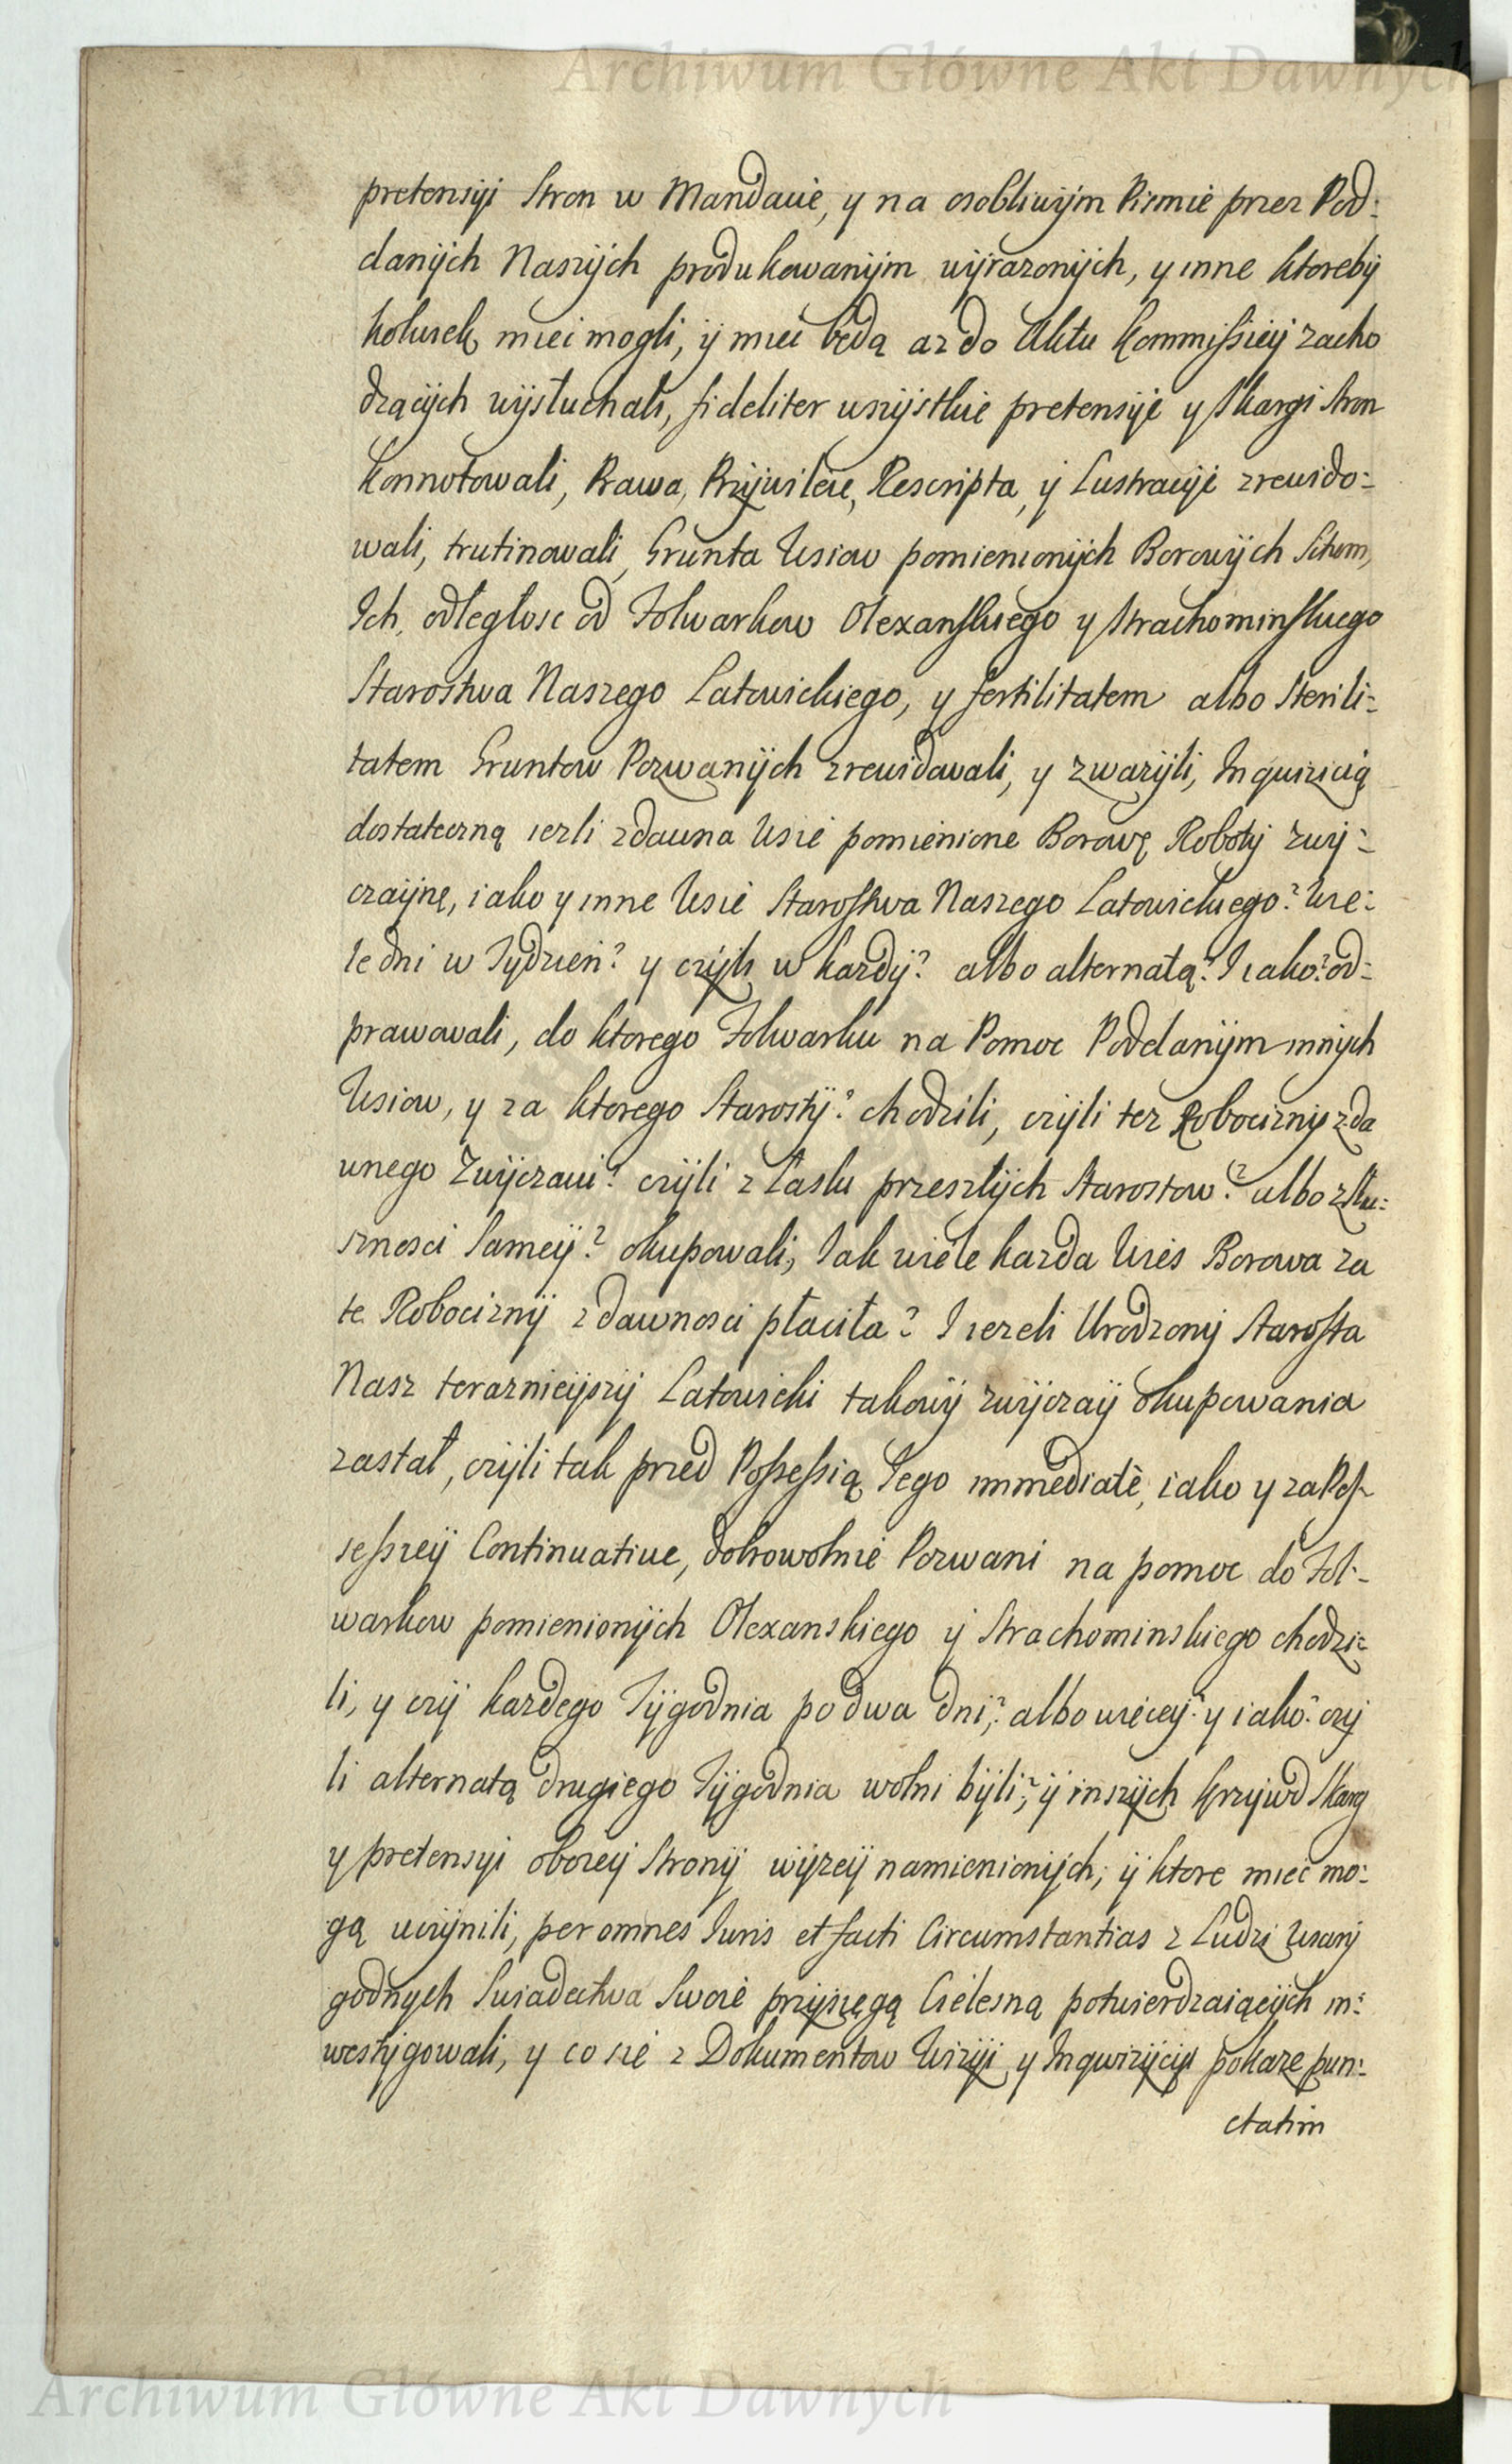 Archiwum Główne Akt Dawnych
pretensyi Stron w Mandacie, y na osobliwÿm Pismie przez Pod:
danÿch Naszÿch produkowanÿm wÿrazonÿch, y inne ktorebÿ
kolwiek miec mogli, ÿ miec będą az do Aktu Kommissieÿ zacho
dzącÿch wÿsłuchali, fideliter wszÿstkie pretensÿie y skargi Stron
konnotowali, Prawa, Przÿwileie, Rescripta, ÿ Lustracÿie zrewido:
wali, trutinowali, Grunta Wsiow pomienionÿch Borowÿch Schem,
Ich, odległosc od Folwarkow Olexanskiego y Strachominskiego
Starostwa Naszego Latowickiego, y fertilitatem albo Sterili:
tatem Gruntow Pozwanÿch zrewidowali, y zwazÿli, Inquizicią
dostateczną iezli zdawna Wsie pomienione Borowę Robotÿ zwÿ:
czaÿnę, iako y inne Wsie Starostwa Naszego Latowickiego? Wie:
le dni w Tÿdzien? y czÿli w kazdÿ? albo alternatą? I iako? od:
prawowali, do ktorego Folwarku na Pomoc Poddanÿm innÿch
Wsiow, y za ktorego Starostÿ? chodzili, czÿli tez Robociznÿ z da
wnego Zwÿczaiu? czÿli z Łaski przeszłÿch Starostow? albo z Słu:
sznosci Sameÿ? okupowali, Jak wiele kazda Wies Borowa za
te Robociznÿ z dawnosci płaciła? I iezeli Urodzonÿ Starosta
Nasz teraznieÿszÿ Latowicki takowÿ zwÿczaÿ okupowania
zastał, czÿli tak przed Possessią Jego immediatè, iako y za Pos
sesszeÿ Continuative, dobrowolnie Pozwani na pomoc do Fol:
warkow pomienionÿch Olexanskiego ÿ Strachominskiego chodzi:
li, y czÿ kazdego Tÿgodnia po dwa dni,? albo więceÿ? y iako? czÿ
li alternatą drugiego Tÿgodnia wolni bÿli,? ÿ inszÿch krzÿwd Skarg
y pretensyi oboieÿ Stronÿ wÿzeÿ namienionÿch, ÿ ktore miec mo:
gą uczÿnili, per omnes Iuris et facti Circumstantias z Ludzi Wiarÿ
godnych Swiadectwa Swoie przÿsięgą Cielesną potwierdzaiącÿch in:
westÿgowali, y co się z Dokumentow Wizÿi y Inqwizÿcÿi pokaze pun:
ctatim
Archiwum Główne Akt Dawnych